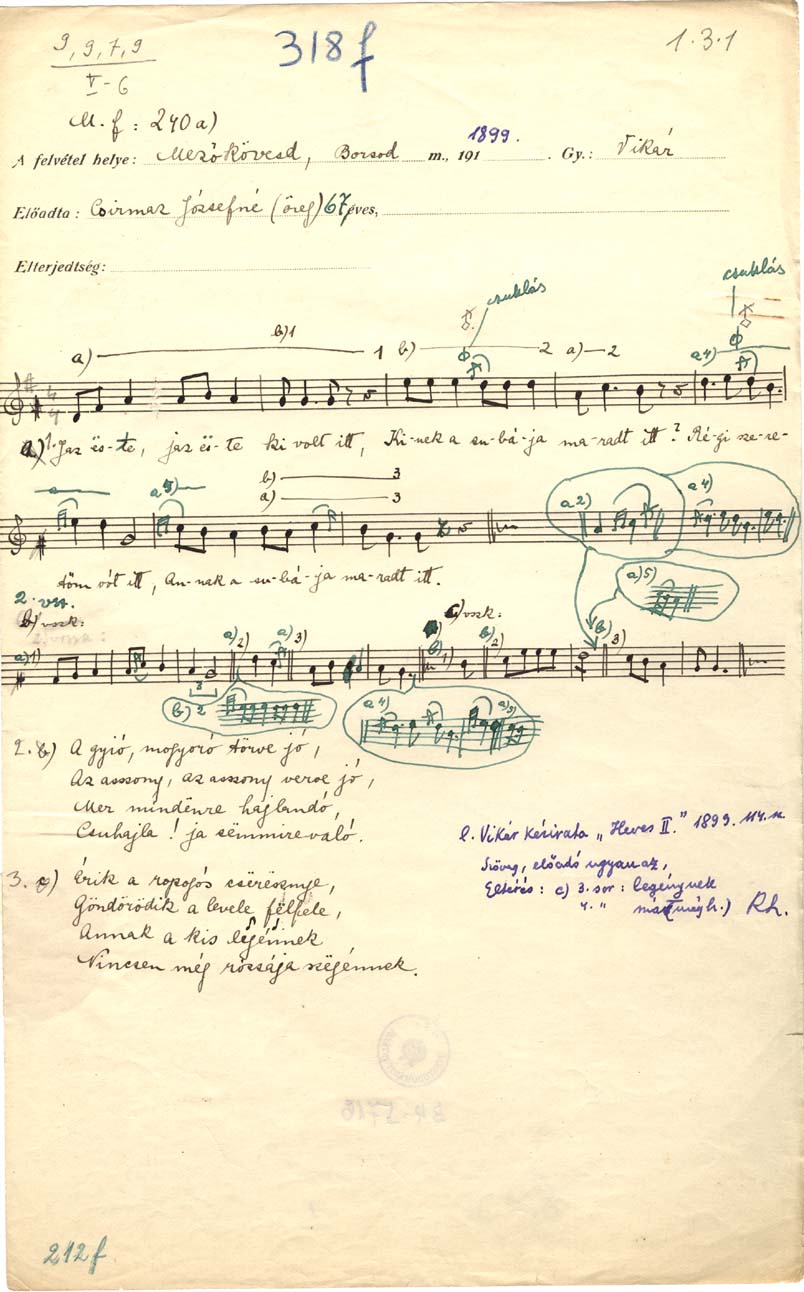 9, 9, 7, 9
V-6
318f
1.3.1
M. f : 240 a)
A felvétel helye: Mezőkövesd, Borsod m., 191 1899. Gy.: Vikár
Előadta: Csirmaz Józsefné (öreg) 67 éves,
Elterjedtség:
csuklás
csuklás
b) 1
a) 1 b) 2 a) 2 a4)
a) 1. Jaz ës-te, jaz ës-te ki volt itt, Ki-nek a su-bá-ja ma-radt itt? Ré-gi sze-re-
a5)
b) 3
a) 3
a2)
a4)
a)5)
töm vót itt, An-nak a su-bá-ja ma-radt itt.
2. vsz.
b) vszk:
c) vszk:
a) 1) a) 2) a) 3) 1) b) 2) b) 3)
b) 2
a4)
2. b) A gyió, mogyoró törve jó,
Az asszony, az asszony verve jó,
Mer mindënre hajlandó,
Csuhajla! ja sëmmirevaló.
3. c) Érik a ropogós csërësznye,
Göndörödik a levele fëlfele,
Annak a kis legénnek
Nincsen még rózsája szëgénnek.
l. Vikár kézirata „Heves II." 1899. 114. sz.
Szöveg, előadó ugyanaz,
Eltérés: c) 3. sor: legénynek
4. "
Rh.
212f